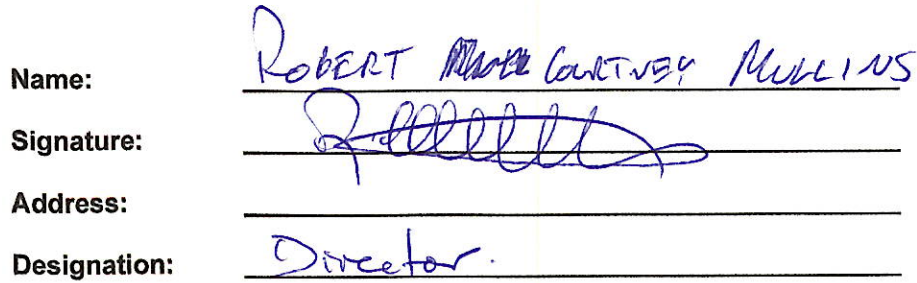 Name: ROBERT COURTNEY MULLINS
Signature:
Address:
Designation: Director.